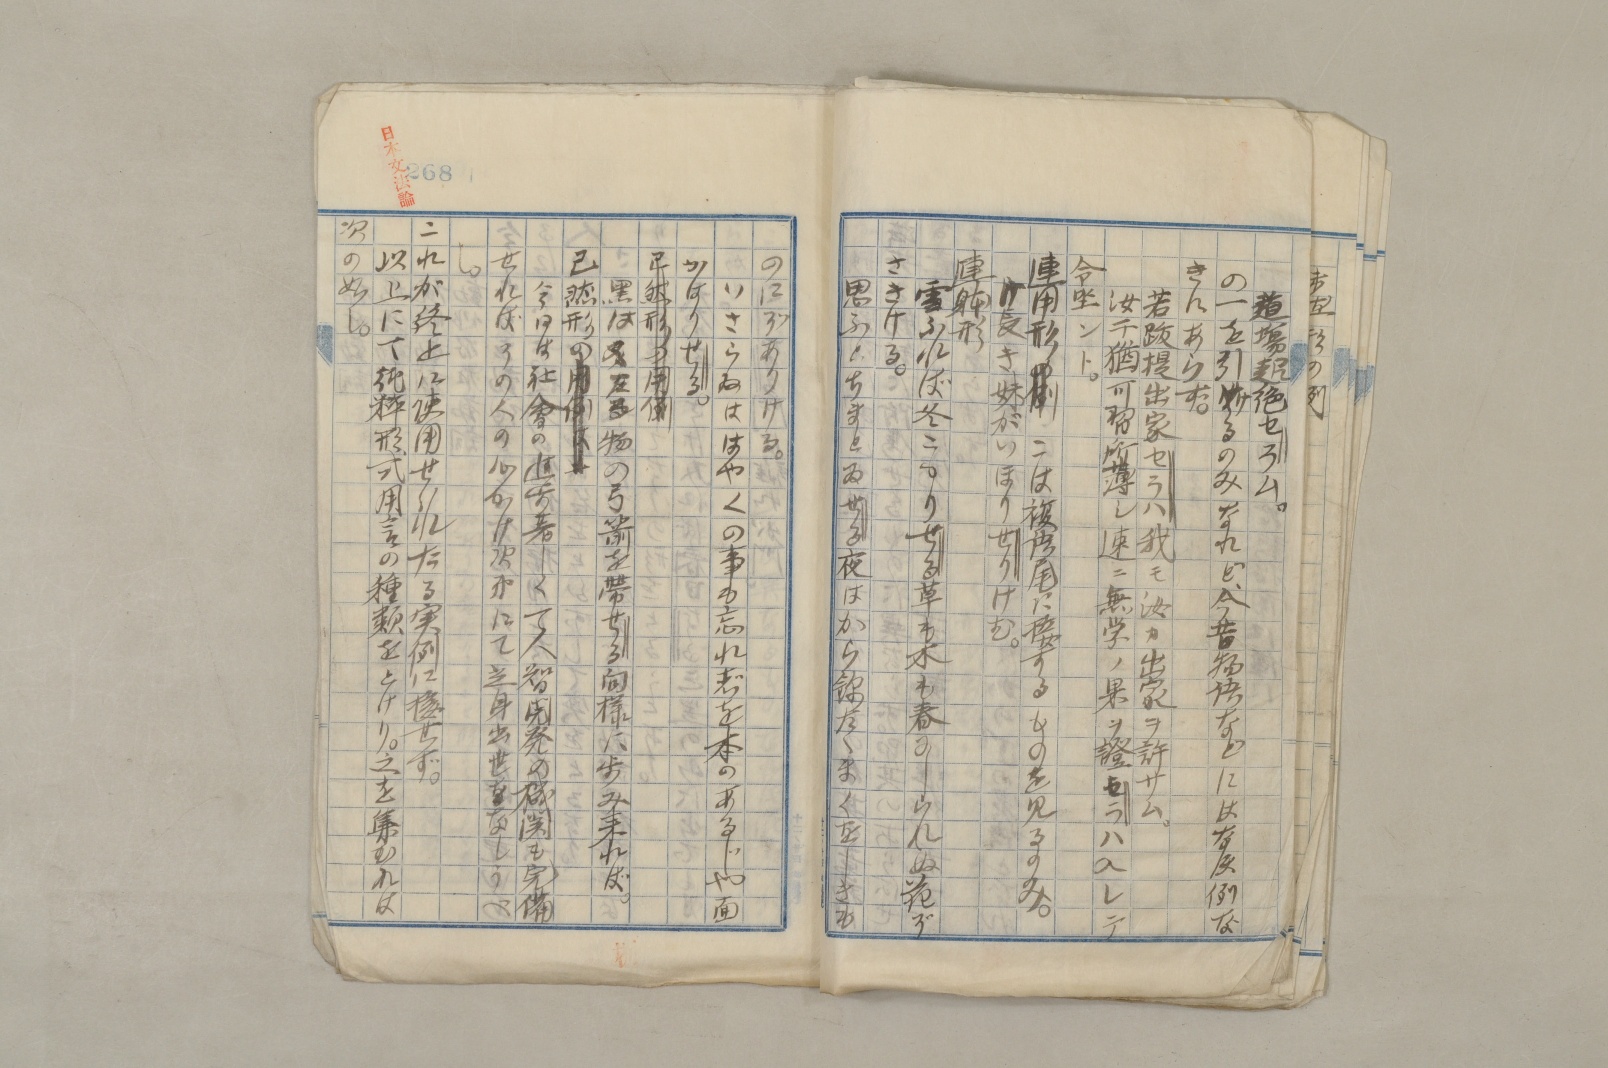 未然形の例
道場起絶セラム。
の一を引けるのみなれど、今昔物語などにはな反例な
きにあらず。
若跋提出家セラハ我モ汝カ出家ヲ許サム。
汝ニ猶可習所薄シ速ニ無学ノ果ヲ證セラハ入レテ
令坐ント。
連用形の例 こは複語尾に接するものを見るのみ。
け長き妹がいほりせりけむ。
連体形
雪ふれば冬こもりせる草も木も春にしられぬ花ぞ
さきける。
思ふどちまとゐせる夜はから錦たたまくをしきも
のにぞありける。
いさらゐははやくの事も忘れじを本のあるじや面
かはりせる。
已然形の用例
黒は物の弓箭を帯せる同様に歩み来れば。
已然形の用例は
今日は社会の進歩著しくて人智開発の機関も完備
せればその人の心かけ次第にて立身出世をなしうべ
し。
これが終止に使用せられたる実例に接せず。
以上にて純粋形式用言の種類をとけり。之を集むれは
次の如し。
日本文法論
268